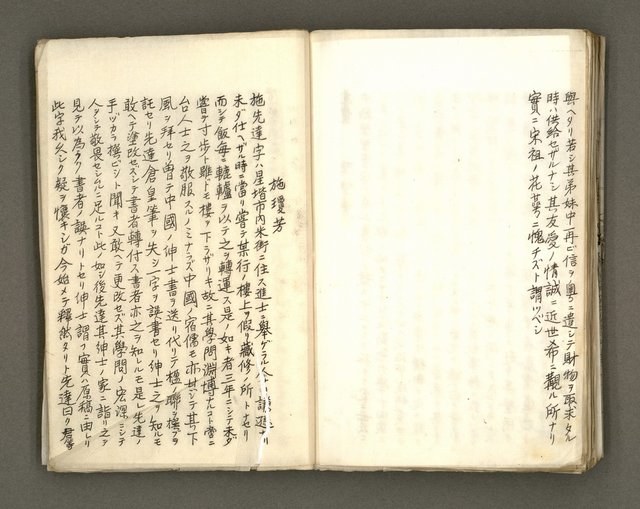 與ヘタリ若シ其弟妹中一再ビ信ヲ奧ニ遣シテ財物ヲ取求タル
時ハ供給セザルナシ其友愛ノ情誠ニ近世希ニ觀ル所ナリ
實ニ宋祖ノ花萼ニ愧チズト謂ツベシ
施瓊芳
施先達字ハ星階市内米街ニ住ス進士ニ舉ゲラル人ト
未ダ仕ヘザル時ニ當リ嘗テ某行ノ樓上ヲ假リ藏修ノ所トナセリ
而シテ飯每ニ轆轤ヲ以テ之ヲ轉運ス是ノ如キ者三年ニシテ未ダ
嘗テ寸步ト雖トモ樓ヲ下ラザリキ故ニ其學問淵博ナルコト啻ニ
台人士之ヲ敬服スルノミナラズ中國ノ宿儒モ亦甘ジテ其下
風ヲ拜セリ曽テ中國ノ紳士書ヲ送リ代リテ楹ノ聯ヲ撰ブヲ
託セリ先達倉皇筆ヲ失シ一字ヲ誤書セリ紳士之ヲ知ルモ
敢ヘテ塗改セズシテ書者ニ轉付ス書者亦之ヲ知ルモ是レ先達ノ
手ヅカラ撰ビシト聞オ又敢ヘテ更改セズ其學問ノ宏深ニシテ
人ヲシテ敬畏セシムルニ足ルコト此ノ如シ後先達其紳士ノ家ニ詣リ之ヲ
見テ以為ラク書者ノ誤ナリトセリ紳士謂フ實ハ原稿ニ由レリ
此字我久シク疑ヲ懷キシガ今始メテ釋然タリト先達曰ク